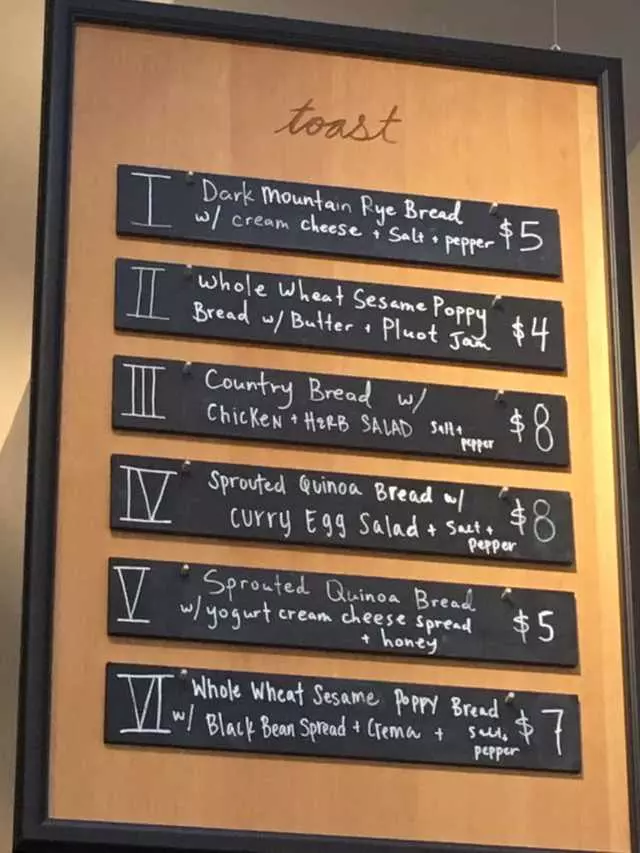 toast
I Dark Mountain Rye Bread
w/ cream cheese + Salt + pepper $5
II Whole Wheat Sesame Poppy
Bread w/ Butter + Pluot Jam $4
III Country Bread w/
Chicken + HERB SALAD Salt + pepper $8
IV Sprouted Quinoa Bread w/
Curry Egg Salad + Salt + pepper $8
V Sprouted Quinoa Bread
w/ yogurt cream cheese spread
+ honey $5
VI Whole Wheat Sesame Poppy Bread
w/ Black Bean Spread + Crema + Salt + pepper $7